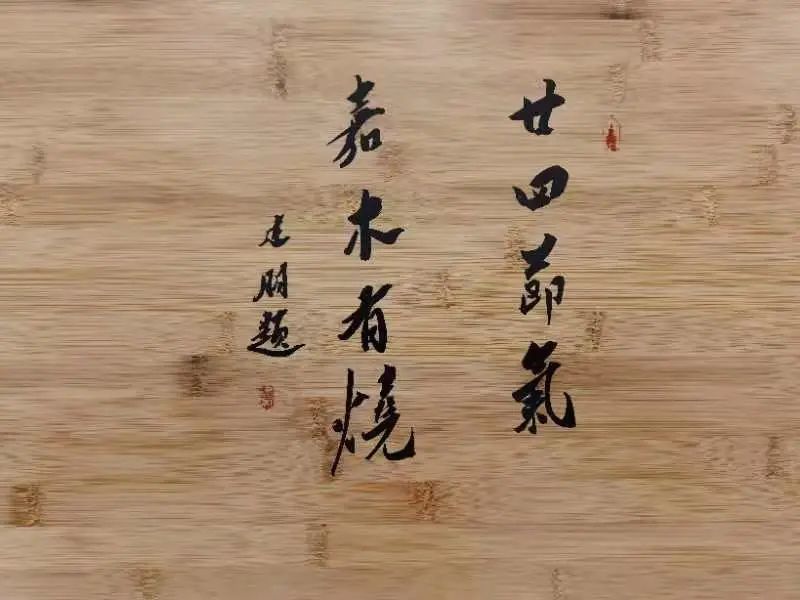 廿四節氣
嘉木有燒
建朋題